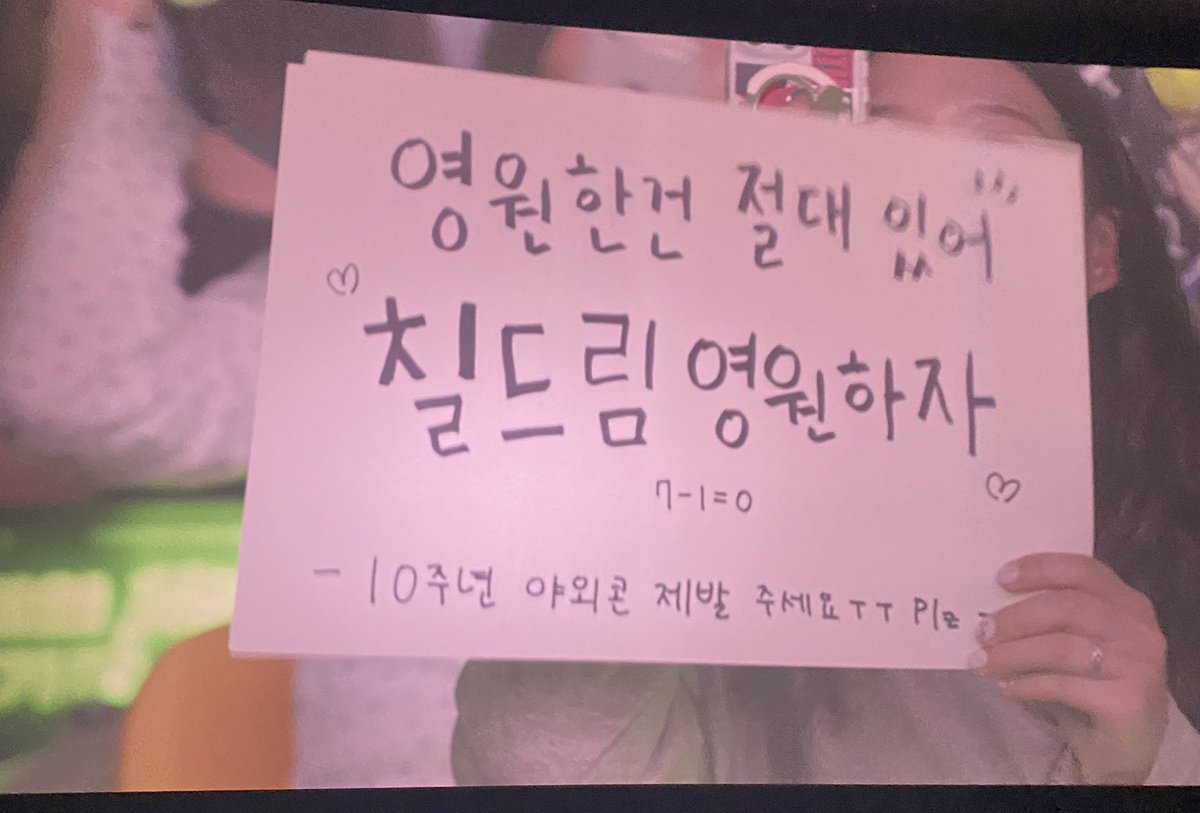 영원한건 절대 있어
칠드림 영원하자
7-1=0
- 10주년 야외콘 제발 주세요ㅜㅜ Plz